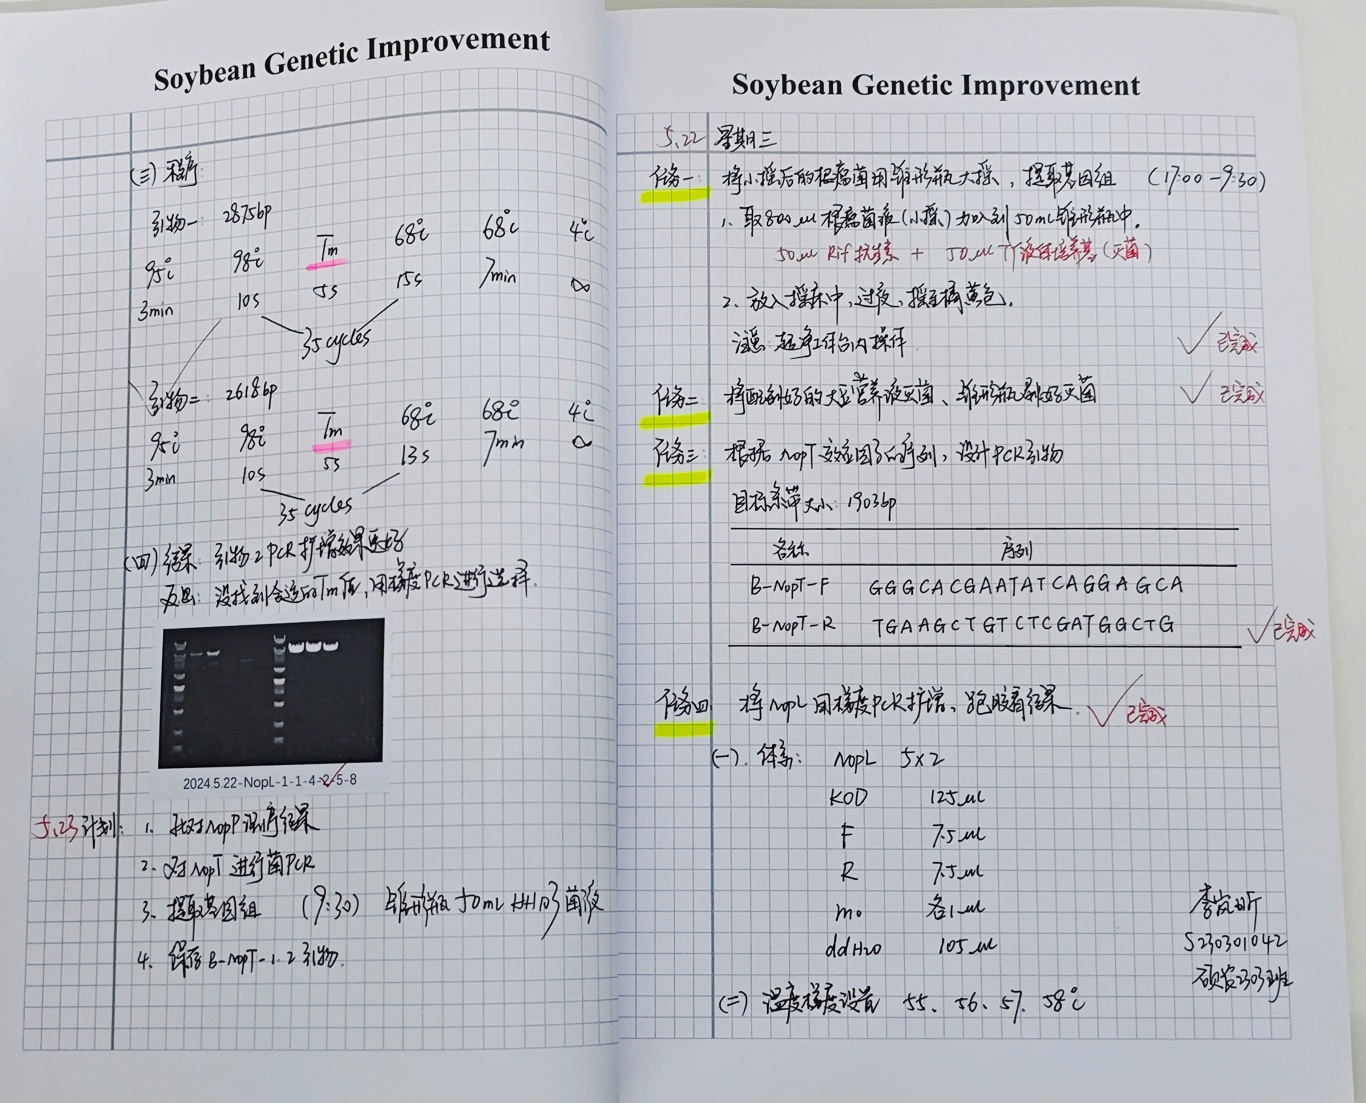 Soybean Genetic Improvement
(三) 程序
引物一: 2875bp
95℃ 98℃ Tm 68℃ 68℃ 4℃
3min 10s 5s 15s 7min ∞
35 cycles
引物二: 2618bp
95℃ 98℃ Tm 68℃ 68℃ 4℃
3min 10s 5s 13s 7min ∞
35 cycles
(四) 结果: 引物2PCR扩增效果更好
反思: 没找到合适的Tm值,用梯度PCR进行选择.
2024.5.22-NopL-1-1-4-2-5-8
5.23计划: 1. 比对NopP测序结果
2. 对NopT进行菌PCR
3. 提取基因组 (9:30) 锥形瓶50mL HH103菌液
4. 保存B-NopT-1.2引物.
Soybean Genetic Improvement
5.22 星期三
任务一: 将小摇后的根瘤菌用锥形瓶大摇,提取基因组 (17:00-9:30)
1. 取800μl根瘤菌液(小摇)加入到50mL锥形瓶中.
50μl Rif抗生素 + 50μl TY液体培养基(灭菌)
2. 放入摇床中,过夜,摇至橘黄色.
注意: 超净工作台内操作 已完成
任务二: 将配制好的大豆营养液灭菌、锥形瓶刷好灭菌 已完成
任务三: 根据NopT效应因子的序列,设计PCR引物
目标条带大小: 1903bp
名称 序列
B-NopT-F GGGCACGAATATCAGGAGCA
B-NopT-R TGAAGCTGTCTCGATGGCTG 已完成
任务四: 将NopL用梯度PCR扩增、跑胶看结果. 已完成
(一). 体系: NopL 5×2
KOD 125μl
F 7.5μl
R 7.5μl
mo 各1μl
ddH2O 105μl
(二) 温度梯度设置 55、56、57、58℃
S230301042
硕农2303班